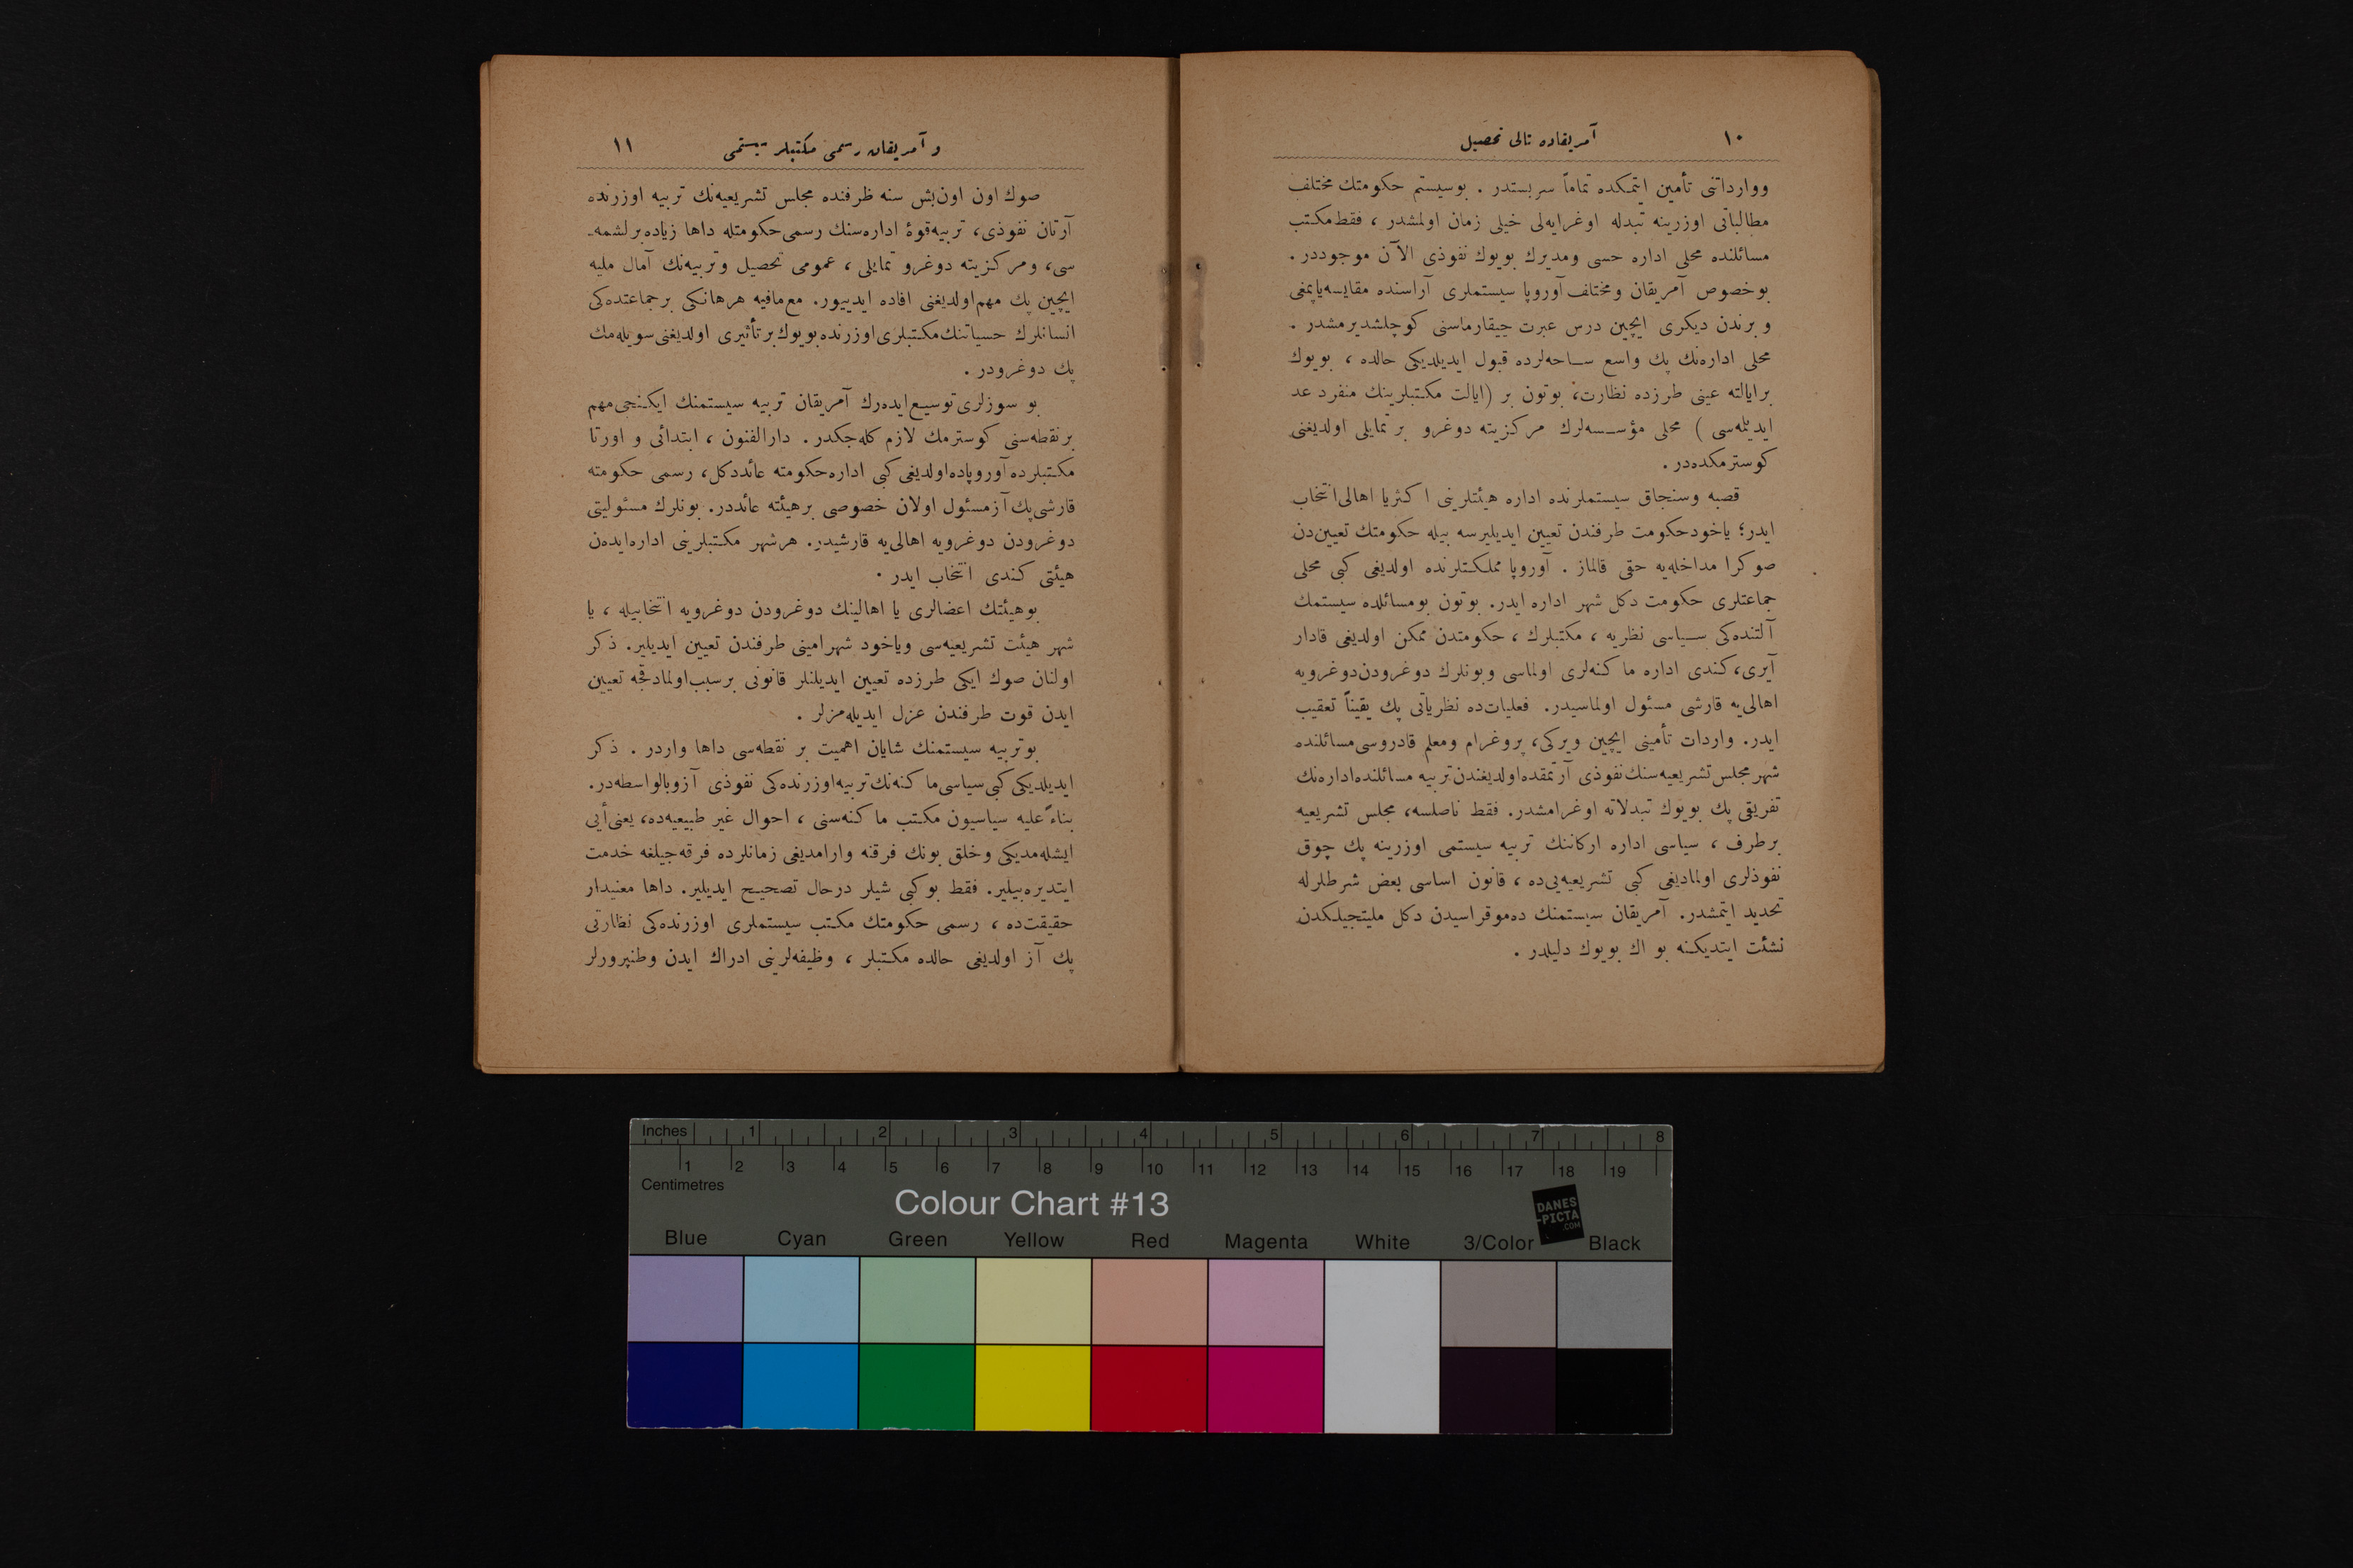 ١٠
آمريقاده تالى تحصيل
ووارداتنى تأمين ايتمكده تماماً سربستدر . بوسيستم حكومتك مختلف
مطالباتى اوزرينه تبدله اوغرايه‌لى خيلى زمان اولمشدر ، فقط مكتب
مسائلنده محلى اداره حسى ومديرك بويوك نفوذى الآن موجوددر .
بوخصوص آمريقان ومختلف آوروپا سيستملرى آراسنده مقايسه ياپمغى
و برندن ديكرى ايچين درس عبرت جيقارماسنى كوچلشديرمشدر .
محلى اداره‌نك پك واسع ساحه‌لرده قبول ايديلديكى حالده ، بويوك
برايالته عينى طرزده نظارت، بوتون بر (ايالت مكتبلرينك منفرد عد
ايديلمه‌سى ) محلى مؤسسه‌لرك مركزيته دوغرو بر تمايلى اولديغنى
كوسترمكده‌در .
قصبه وسنجاق سيستملرنده اداره هيئتلرينى اكثريا اهالى انتخاب
ايدر؛ ياخود حكومت طرفندن تعيين ايديليرسه بيله حكومتك تعيين‌دن
صوكرا مداخله‌يه حقى قالماز . آوروپا مملكتلرنده اولديغى كبى محلى
جماعتلرى حكومت دكل شهر اداره ايدر. بوتون بومسائلده سيستمك
آلتنده‌كى سياسى نظريه ، مكتبلرك ، حكومتدن ممكن اولديغى قادار
آيرى، كندى اداره ماكنه‌لرى اولماسى وبونلرك دوغرودن دوغرويه
اهالى‌يه قارشى مسئول اولماسيدر. فعليات‌ده نظرياتى پك يقيناً تعقيب
ايدر. واردات تأمينى ايچين ويركى، پروغرام ومعلم قادروسى مسائلنده
شهر مجلس تشريعيه سنك نفوذى آرتمقده اولديغندن تربيه مسائلنده اداره‌نك
تفريقى پك بويوك تبدلاته اوغرامشدر. فقط ناصلسه، مجلس تشريعيه
برطرف ، سياسى اداره اركاننك تربيه سيستمى اوزرينه پك چوق
نفوذلرى اولماديغى كبى تشريعيه‌يى‌ده ، قانون اساسى بعض شرطلرله
تحديد ايتمشدر. آمريقان سيستمنك ده‌موقراسيدن دكل مليتجيلكدن
نشئت ايتديكنه بو اك بويوك دليلدر .
و آمريقان رسمى مكتبلر سيستمى
١١
صوك اون اون‌بش سنه ظرفنده مجلس تشريعيه‌نك تربيه اوزرنده
آرتان نفوذى، تربيه قوۀ اداره‌سنك رسمى حكومتله داها زياده برلشمه‌ـ
سى، ومركزيته دوغرو تمايلى ، عمومى تحصيل وتربيه‌نك آمال مليه
ايچين پك مهم اولديغنى افاده ايدييور. مع‌مافيه هرهانكى برجماعتده‌كى
انسانلرك حسياتنك مكتبلرى اوزرنده بويوك برتأثيرى اولديغنى سويله‌مك
پك دوغرودر .
بو سوزلرى توسيع ايده‌رك آمريقان تربيه سيستمنك ايكنجى مهم
برنقطه‌سنى كوسترمك لازم كله‌جكدر. دارالفنون ، ابتدائى و اورتا
مكتبلرده آوروپاده اولديغى كبى اداره حكومته عائددكل، رسمى حكومته
قارشى پك آزمسئول اولان خصوصى برهيئته عائددر. بونلرك مسئوليتى
دوغرودن دوغرويه اهالى‌يه قارشيدر. هرشهر مكتبلرينى اداره ايده‌ن
هيئتى كندى انتخاب ايدر .
بوهيئتك اعضالرى يا اهالينك دوغرودن دوغرويه انتخابيله ، يا
شهر هيئت تشريعيه‌سى وياخود شهرامينى طرفندن تعيين ايديلير. ذكر
اولنان صوك ايكى طرزده تعيين ايديلنلر قانونى برسبب اولمادقجه تعيين
ايدن قوت طرفندن عزل ايديله‌مزلر .
بوتربيه سيستمنك شايان اهميت بر نقطه‌سى داها واردر . ذكر
ايديلديكى كبى سياسى ماكنه‌نك تربيه اوزرنده‌كى نفوذى آزوبالواسطه‌در.
بناءً عليه سياسيون مكتب ماكنه‌سنى ، احوال غير طبيعيه‌ده، يعنى أيى
ايشله‌مديكى وخلق بونك فرقنه وارامديغى زمانلرده فرقه‌جيلغه خدمت
ايتديره‌بيلير. فقط بوكبى شيلر درحال تصحيح ايديلير. داها معنيدار
حقيقت‌ده ، رسمى حكومتك مكتب سيستملرى اوزرنده‌كى نظارتى
پك آز اولديغى حالده مكتبلر ، وظيفه‌لرينى ادراك ايدن وطنپرورلر
Inches 1 2 3 4 5 6 7 8
1 2 3 4 5 6 7 8 9 10 11 12 13 14 15 16 17 18 19
Centimetres
Colour Chart #13
DANES
-PICTA
.COM
Blue Cyan Green Yellow Red Magenta White 3/Color Black